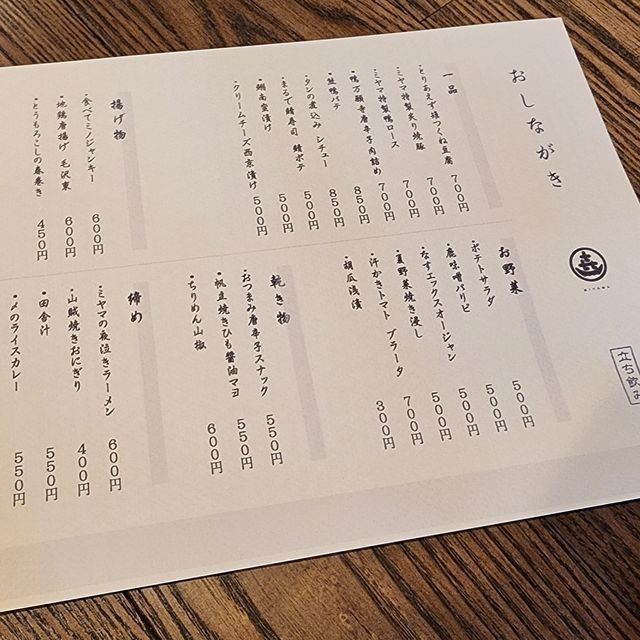 おしながき
MIYAMA
立ち飲み
一品
・とりあえず雄つくね豆腐 700円
・ミヤマ特製炙り焼豚 700円
・ミヤマ特製鴨ロース 700円
・鴨万願寺唐辛子肉詰め 850円
・鮭鴨パテ 850円
・タンの煮込み シチュー
・まるで鯖寿司 鯖ポテ 500円
・鯛南蛮漬け 500円
・クリームチーズ西京漬け 500円
揚げ物
・食べてミノジャンキー 600円
・地鶏唐揚げ 毛沢東 600円
・とうもろこしの春巻き 450円
お野菜
・ポテトサラダ 500円
・鹿味噌パリピ 500円
・なすエックスオージャン 500円
・夏野菜焼き浸し 500円
・汗かきトマト ブラータ 700円
・胡瓜浅漬 300円
乾き物
・おつまみ唐辛子スナック 550円
・帆立焼きひも醤油マヨ 550円
・ちりめん山椒 600円
締め
・ミヤマの夜泣きラーメン 600円
・山賊焼きおにぎり 400円
・田舎汁 550円
・〆のライスカレー 550円